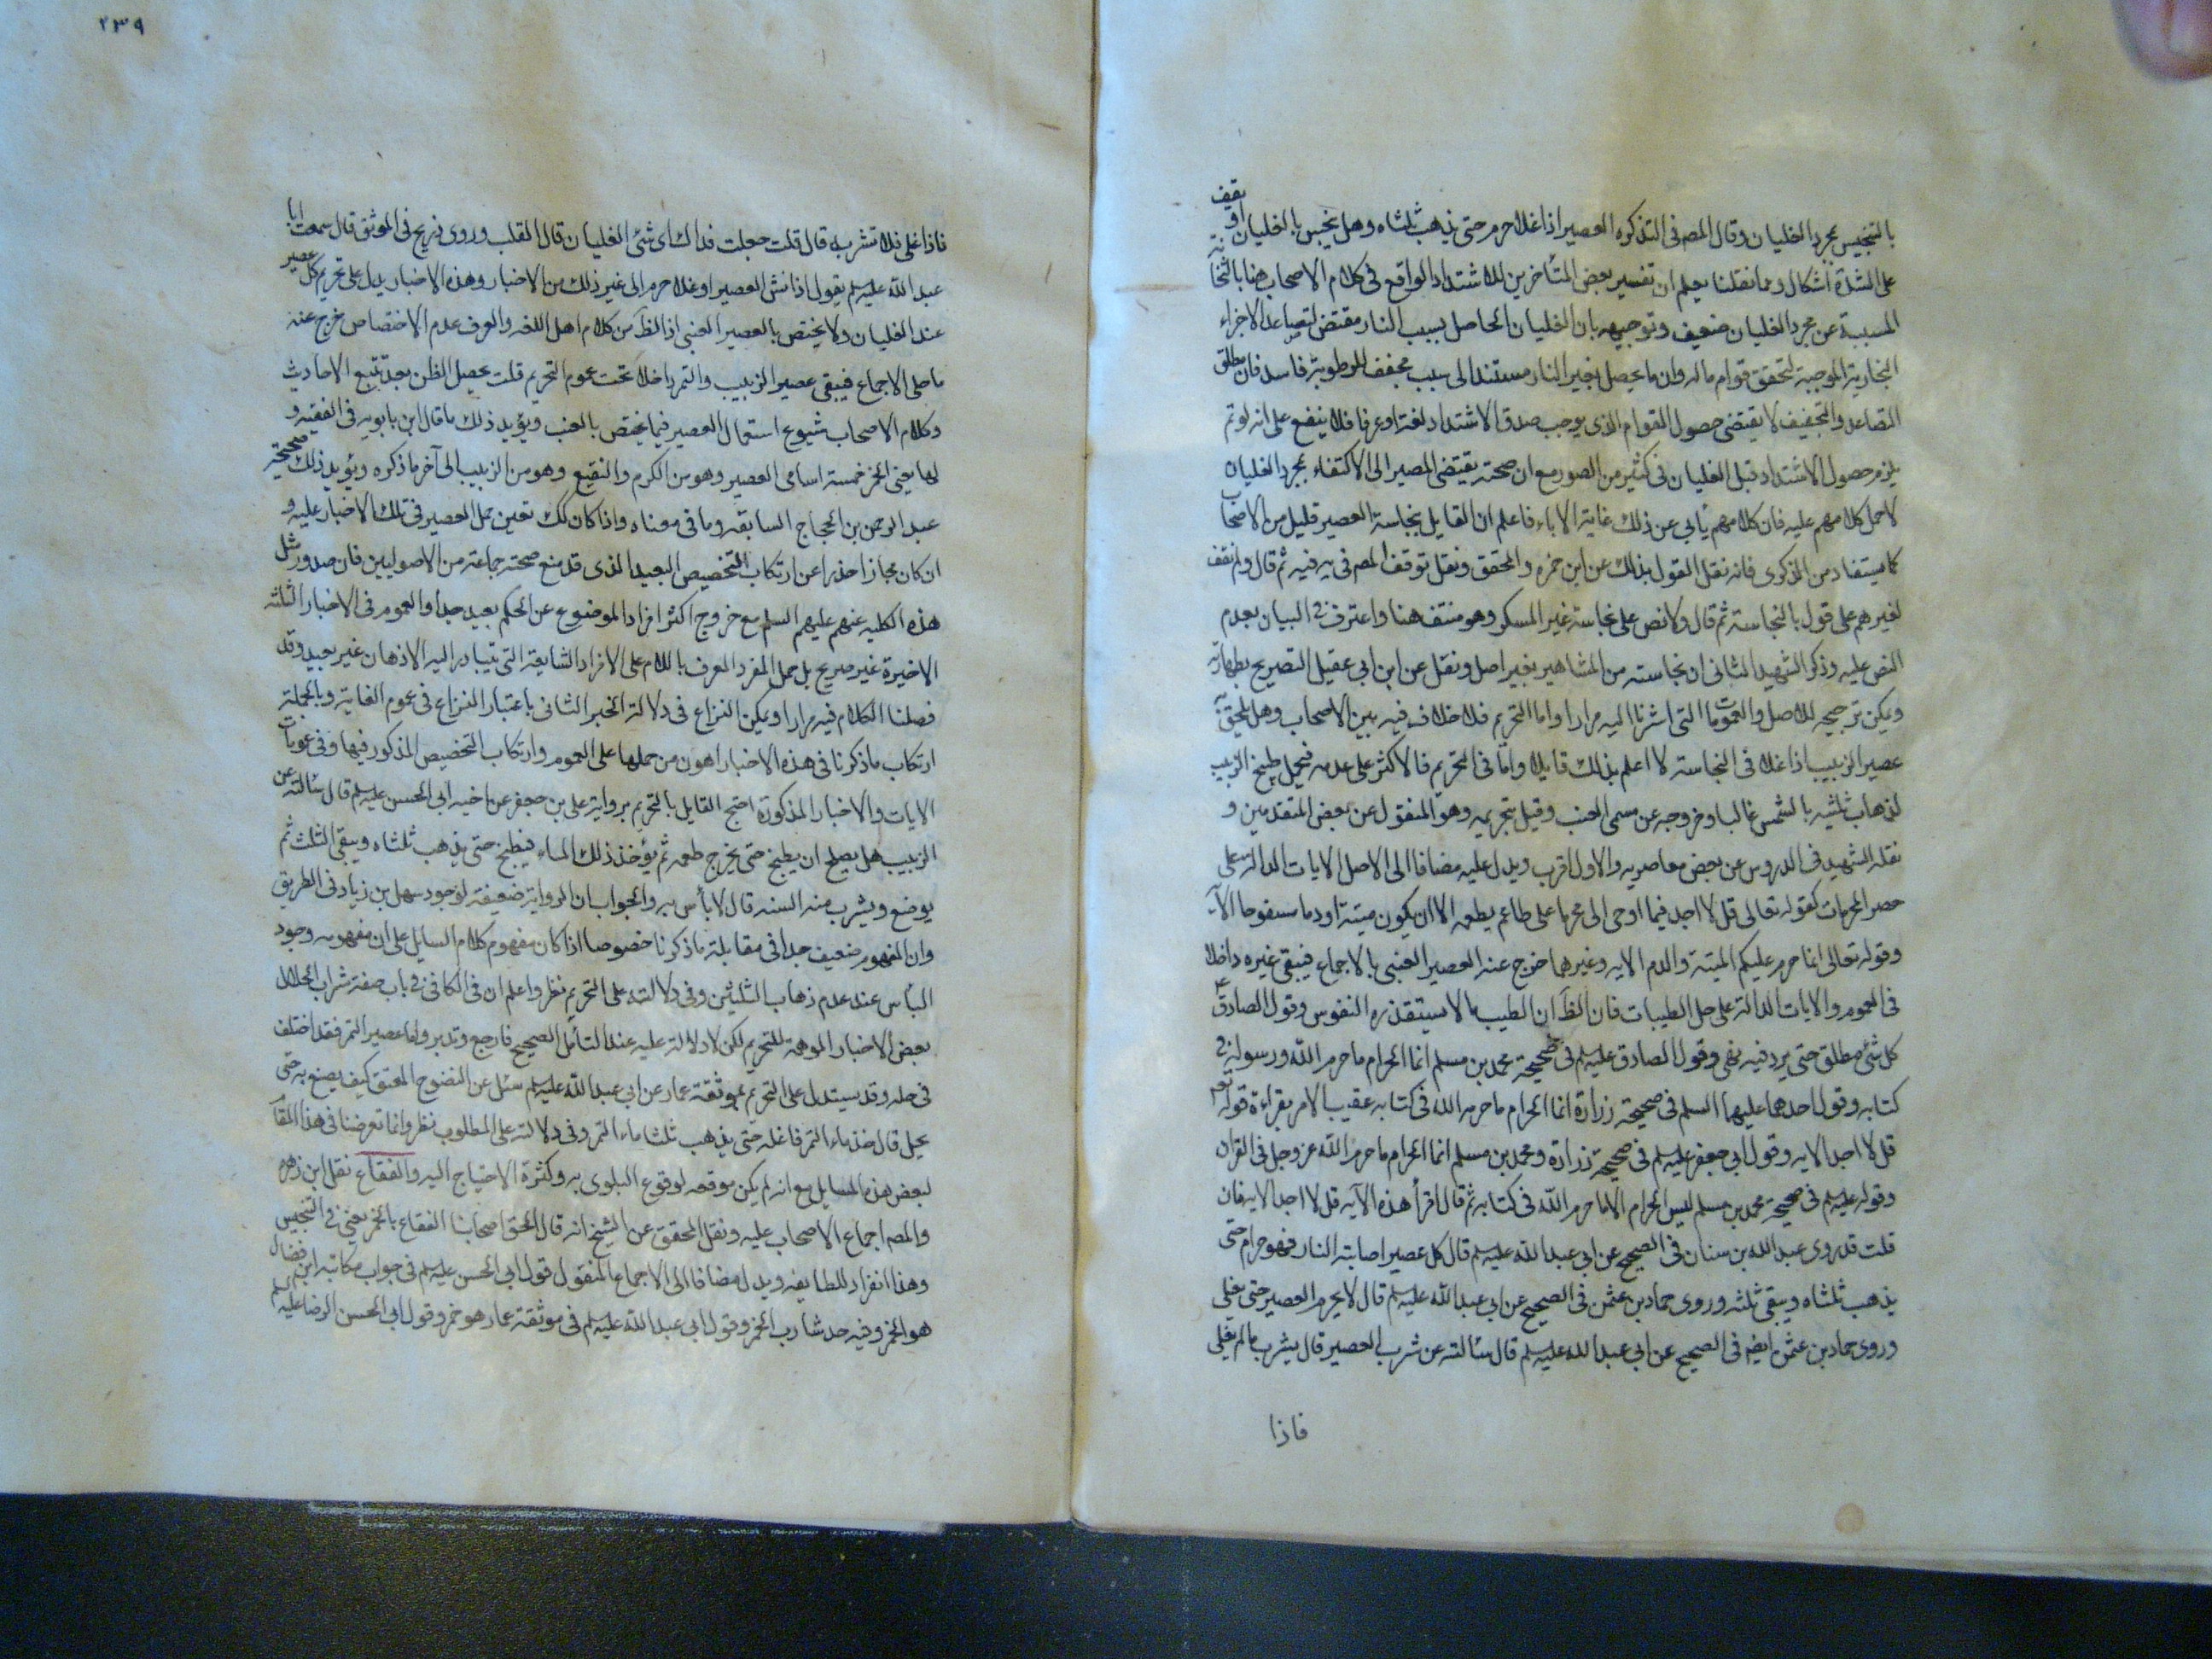 بالتنجيس بمجرد الغليان وقال المص في التذكره العصير اذا غلا حرم حتى يذهب ثلثاه وهل ينجس بالغليان او يقف
على الشدة اشكال ومما نقلنا يعلم ان تفسير بعض المتأخرين للاشتداد الواقع في كلام الاصحاب هنا بالثخانة
المسببة عن مجرد الغليان ضعيف وتوجيهه بان الغليان الحاصل بسبب النار مقتض لتصاعد الاجزاء
البخارية الموجبة لتحقق قوام ماله وان ما يحصل بغير النار مستند الى سبب مجفف للرطوبة فاسد فان مطلق
التصاعد والتجفيف لا يقتضي حصول القوام الذي يوجب صدق الاشتداد لغة او عرفا فلا ينفع على انه لو تم
يلزم حصول الاشتداد قبل الغليان في كثير من الصور مع ان صحته يقتضي المصير الى الاكتفاء بمجرد الغليان
لا حمل كلامهم عليه فان كلامهم يأبى عن ذلك غاية الاباء فاعلم ان القايل بنجاسة العصير قليل من الاصحاب
كما يستفاد من الذكرى فانه نقل القول بذلك عن ابن حمزه والمحقق ونقل توقف المص في يه فيه ثم قال ولم نقف
لغيرهم على قول بالنجاسة ثم قال ولا نص على نجاسة غير المسكر وهو منتف هنا واعترف في البيان بعدم
النص عليه وذكر الشهيد الثاني ان نجاسته من المشاهير بغير اصل ونقل عن ابن ابي عقيل التصريح بطهارته
ويمكن ترجيحه للاصل والعمومات التي اشرنا اليه مرارا واما التحريم فلا خلاف فيه بين الاصحاب وهل يلحق به
عصير الزبيب اذا غلا في النجاسة لا اعلم بذلك قايلا واما في التحريم فالاكثر على عدمه فيحل طبيخ الزبيب
لذهاب ثلثيه بالشمس غالبا وخروجه عن مسمى العنب وقيل بتحريمه وهو المنقول عن بعض المتقدمين و
نقله الشهيد في الدروس عن بعض معاصريه والاول اقرب ويدل عليه مضافا الى الاصل الايات الدالة على
حصر المحرمات كقوله تعالى قل لا اجد فيما اوحي الى محرما على طاعم يطعمه الا ان يكون ميتة او دما مسفوحا الآية
وقوله تعالى انما حرم عليكم الميتة والدم الايه وغيرهما خرج عنه العصير العنبي بالاجماع فيبقى غيره داخلا
في العموم والايات الدالة على حل الطيبات فان الظ ان الطيب ما لا يستقذره النفوس وقول الصادق ع
كل شئ مطلق حتى يرد فيه نهي وقول الصادق عليه السلم في صحيحة محمد بن مسلم انما الحرام ما حرم الله ورسوله في
كتابه وقول احدهما عليهما السلم في صحيحة زرارة انما الحرام ما حرمه الله في كتابه عقيب الامر بقراءة قوله تعم
قل لا اجد الايه وقول ابي جعفر عليه السلم في صحيحة زرارة ومحمد بن مسلم انما الحرام ما حرم الله عز وجل في القران
وقوله عليه السلم في صحيحة محمد بن مسلم ليس الحرام الا ما حرم الله في كتابه ثم قال اقرأ هذه الآيه قل لا اجد الايه فان
قلت قد روى عبد الله بن سنان في الصحيح عن ابي عبد الله عليه السلم قال كل عصير اصابته النار فهو حرام حتى
يذهب ثلثاه ويبقى ثلثه وروى حماد بن عثمن في الصحيح عن ابي عبد الله عليه السلم قال لا يحرم العصير حتى يغلي
وروى حماد بن عثمن ايضا في الصحيح عن ابي عبد الله عليه السلم قال سألته عن شرب العصير قال يشرب ما لم يغلي
فاذا
٢٣٩
فاذا غلى فلا تشربه قال قلت جعلت فداك اي شئ الغليان قال القلب وروى ذريح في الموثق قال سمعت ابا
عبد الله عليه السلم يقول اذا نش العصير او غلا حرم الى غير ذلك من الاخبار وهذه الاخبار يدل على تحريم كل عصير
عند الغليان ولا يختص بالعصير العنبي اذ الظ من كلام اهل اللغه والعرف عدم الاختصاص خرج عنه
ما حل الاجماع فيبقى عصير الزبيب والتمر داخلا تحت عموم التحريم قلت يحصل الظن بعد تتبع الاحاديث
وكلام الاصحاب شيوع استعمال العصير فيما يختص بالعنب ويؤيد ذلك ما قال ابن بابويه في الفقيه و
لها يعني الخمر خمسة اسامي العصير وهو من الكرم والنقيع وهو من الزبيب الى آخر ما ذكره ويؤيد ذلك صحيحة
عبد الرحمن بن الحجاج السابقه وما في معناه واذا كان كك تعين حمل العصير في تلك الاخبار عليه و
ان كان مجازا حذرا عن ارتكاب التخصيص البعيد الذي قد منع صحته جماعة من الاصوليين فان صدور مثل
هذه الكليه عنهم عليهم السلم مع خروج اكثر افراد الموضوع عن الحكم بعيد جدا والعموم في الاخبار الثلثه
الاخيرة غير صريح بل حمل المفرد المعرف باللام على الافراد الشايعة التي يتبادر اليه الاذهان غير بعيد وقد
فصلنا الكلام فيه مرارا ويمكن النزاع في دلالة الخبر الثاني باعتبار النزاع في عموم الغاية وبالجملة
ارتكاب ما ذكرنا في هذه الاخبار اهون من حملها على العموم وارتكاب التخصيص المذكور فيها وفي عمومات
الايات والاخبار المذكورة احتج القايل بالتحريم برواية علي بن جعفر عن اخيه ابي الحسن عليه السلم قال سألته عن
الزبيب هل يصلح ان يطبخ حتى يخرج طعمه ثم يؤخذ ذلك الماء فيطبخ حتى يذهب ثلثاه ويبقى الثلث ثم
يوضع ويشرب منه السنه قال لا بأس به والجواب ان الرواية ضعيفة لوجود سهل بن زياد في الطريق
وان المفهوم ضعيف جدا في مقابلة ما ذكرنا خصوصا اذا كان مفهوم كلام السايل على ان مفهومه وجود
البأس عند عدم ذهاب الثلثين وفي دلالته على التحريم نظر واعلم ان في الكافي في باب صفة شراب الحلال
بعض الاخبار الموهمة للتحريم لكن لا دلالة عليه عند التأمل الصحيح فارجع وتدبر واما عصير التمر فقد اختلف
في حله وقد يستدل على التحريم بموثقة عمار عن ابي عبد الله عليه السلم سئل عن النضوح المعتق كيف يصنع به حتى
يحل قال خذ ماء التمر فاغله حتى يذهب ثلثا ماء التمر وفي دلالته على المطلوب نظر وانما تعرضنا في هذا المقام
لبعض هذه المسايل مع انه لم يكن موقعه لوقوع البلوى به وكثرة الاحتياج اليه والفقاع نقل ابن زهره
والمص اجماع الاصحاب عليه ونقل المحقق عن الشيخ انه قال الحق اصحابنا الفقاع بالخمر يعني في التنجيس
وهذا انفراد للطايفه ويدل مضافا الى الاجماع المنقول قول ابي الحسن عليه السلم في جواب مكاتبه ابن فضال
هو الخمر وفيه حد شارب الخمر وقول ابي عبد الله عليه السلم في موثقة عمار هو خمر وقول ابي الحسن الرضا عليه السلم